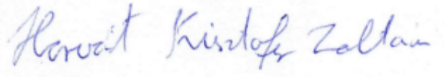 Horvát Kristofer Zoltán